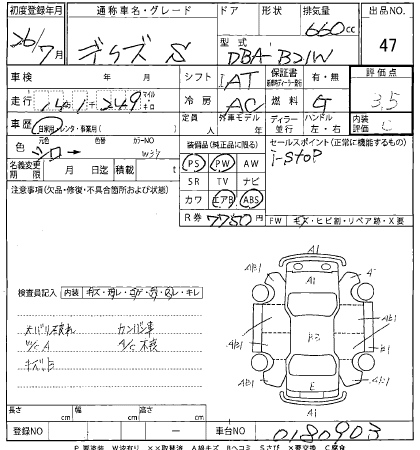 初度登録年月 通称車名・グレード ドア 形状 排気量 出品NO.
26/7月 デイズ S 660cc 47
型式 DBA-B21W
車検 年 月 シフト IAT 保証書 有・無 評価点
走行 141,249 マイル キロ 冷房 AC 燃料 G 3.5
車歴 自家用・レンタ・事業用( ) 定員 人 外車モデル 年 ディーラー 並行 ハンドル 左・右 内装評価 C
色 元色 シロ → 色替 カラーNO W37
装備品(純正品に限る) セールスポイント(正常に機能するもの)
i-stop
名義変更期限 月 日迄 積載 t
PS PW AW
SR TV ナビ
カワ エアB ABS
注意事項(欠品・修復・不具合箇所および状態)
R券 7750円 FW キズ・ヒビ割・リペア跡・X要
検査員記入 内装 キズ・汚レ・コゲ・穴・スレ・キレ
A1
AB1 A
AB1 B3 AB1
B1
AB1 E AB1
A1
カンバン車
W/C A A/C不検
キズ、B
長さ cm 幅 cm 高さ cm
登録NO 車台NO 0180903
P 要塗装 W波有り XX取替済 A線キズ Bヘコミ Sさび X要交換 C腐食